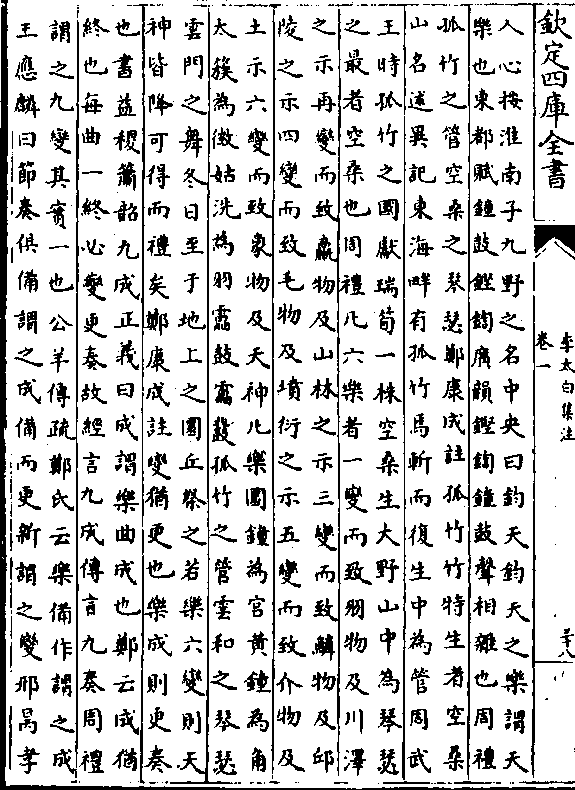 欽定四庫全書
李太白集注
卷一
三十八
人心按淮南子九野之名中央曰鈞天鈞天之樂謂天
樂也東都賦鐘鼓鏗鍧廣韻鏗鍧鐘鼓聲相雜也周禮
孤竹之管空桑之琴瑟鄭康成註孤竹竹特生者空桑
山名述異記東海畔有孤竹焉斬而復生中為管周武
王時孤竹之國獻瑞筍一株空桑生大野山中為琴瑟
之最者空桑也周禮凡六樂者一變而致羽物及川澤
之示再變而致臝物及山林之示三變而致鱗物及邱
陵之示四變而致毛物及墳衍之示五變而致介物及
土示六變而致象物及天神凡樂圜鐘為宫黄鐘為角
太簇為徵姑洗為羽靁鼓靁鼗孤竹之管雲和之琴瑟
雲門之舞冬日至于地上之圜丘奏之若樂六變則天
神皆降可得而禮矣鄭康成註變猶更也樂成則更奏
也書益稷簫韶九成正義曰成謂樂曲成也鄭云成猶
終也每曲一終必變更奏故經言九成傳言九奏周禮
謂之九變其實一也公羊傳疏鄭氏云樂備作謂之成
王應麟曰節奏俱備謂之成備而更新謂之變邢昺孝